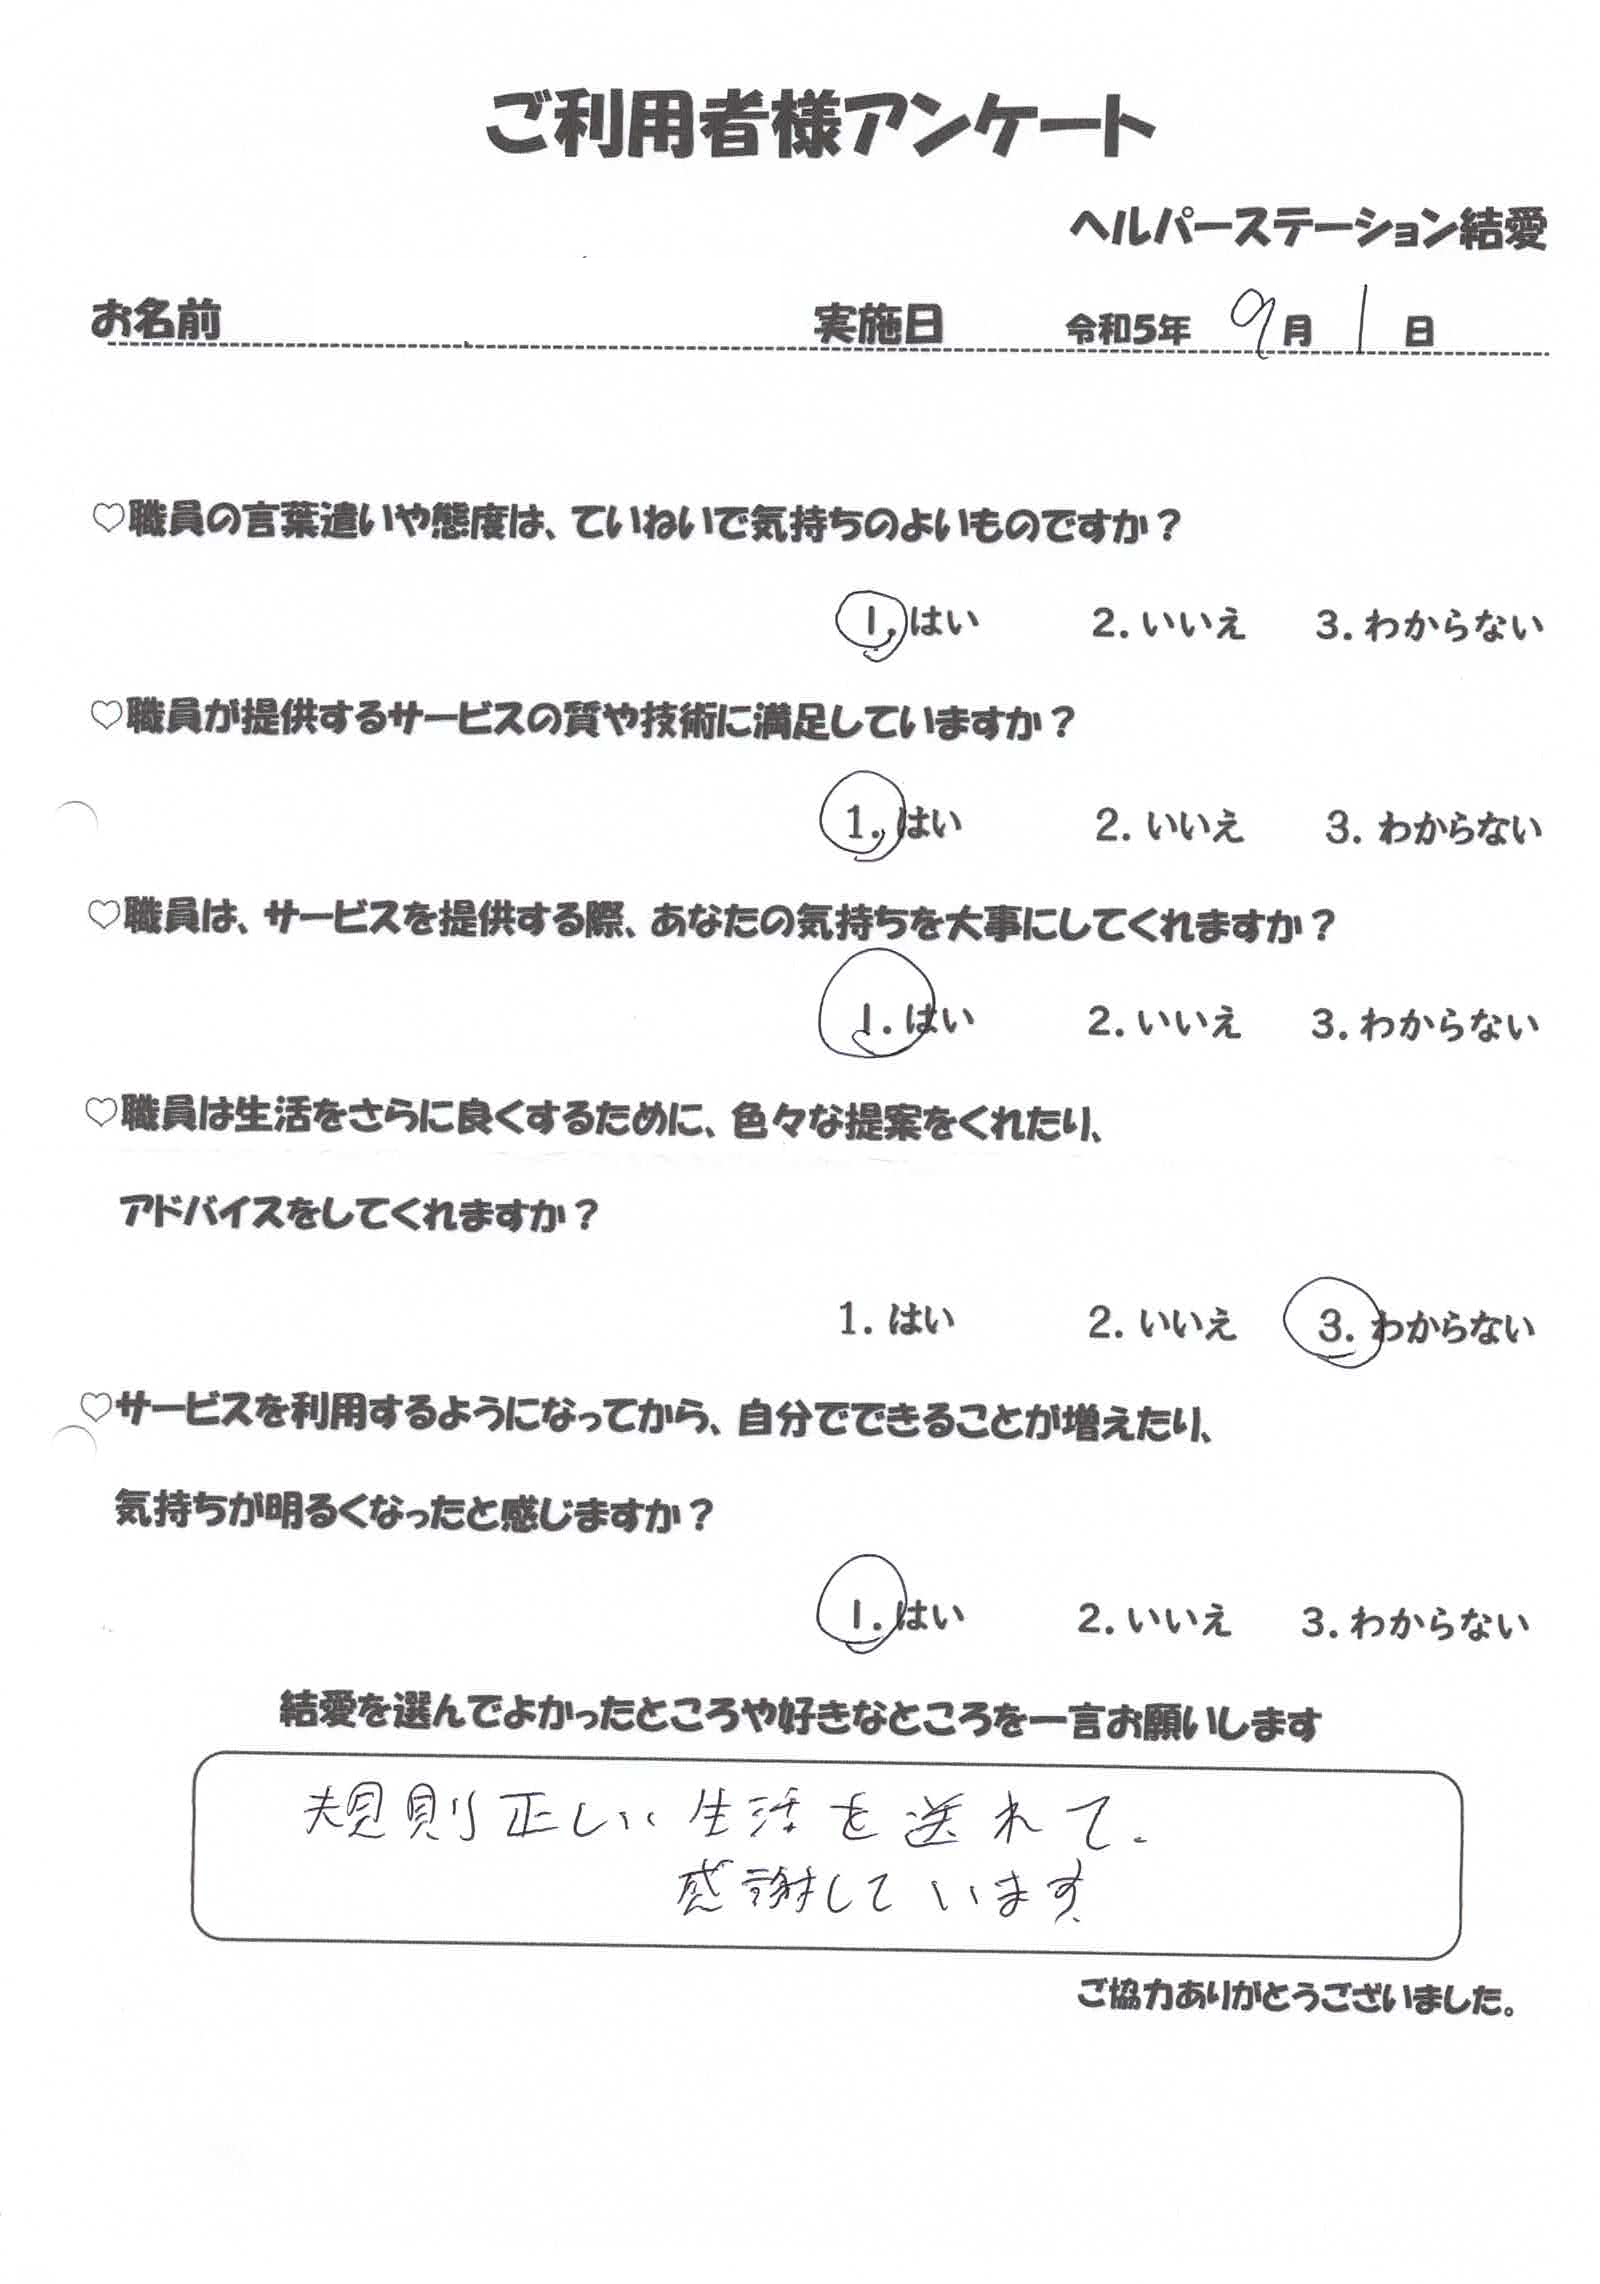 ご利用者様アンケート
ヘルパーステーション結愛
お名前 実施日 令和5年 9月 1日
♡職員の言葉遣いや態度は、ていねいで気持ちのよいものですか？
1. はい 2. いいえ 3. わからない
♡職員が提供するサービスの質や技術に満足していますか？
1. はい 2. いいえ 3. わからない
♡職員は、サービスを提供する際、あなたの気持ちを大事にしてくれますか？
1. はい 2. いいえ 3. わからない
♡職員は生活をさらに良くするために、色々な提案をくれたり、
アドバイスをしてくれますか？
1. はい 2. いいえ 3. わからない
♡サービスを利用するようになってから、自分でできることが増えたり、
気持ちが明るくなったと感じますか？
1. はい 2. いいえ 3. わからない
結愛を選んでよかったところや好きなところを一言お願いします
規則正しい生活を送れて、
感謝しています
ご協力ありがとうございました。